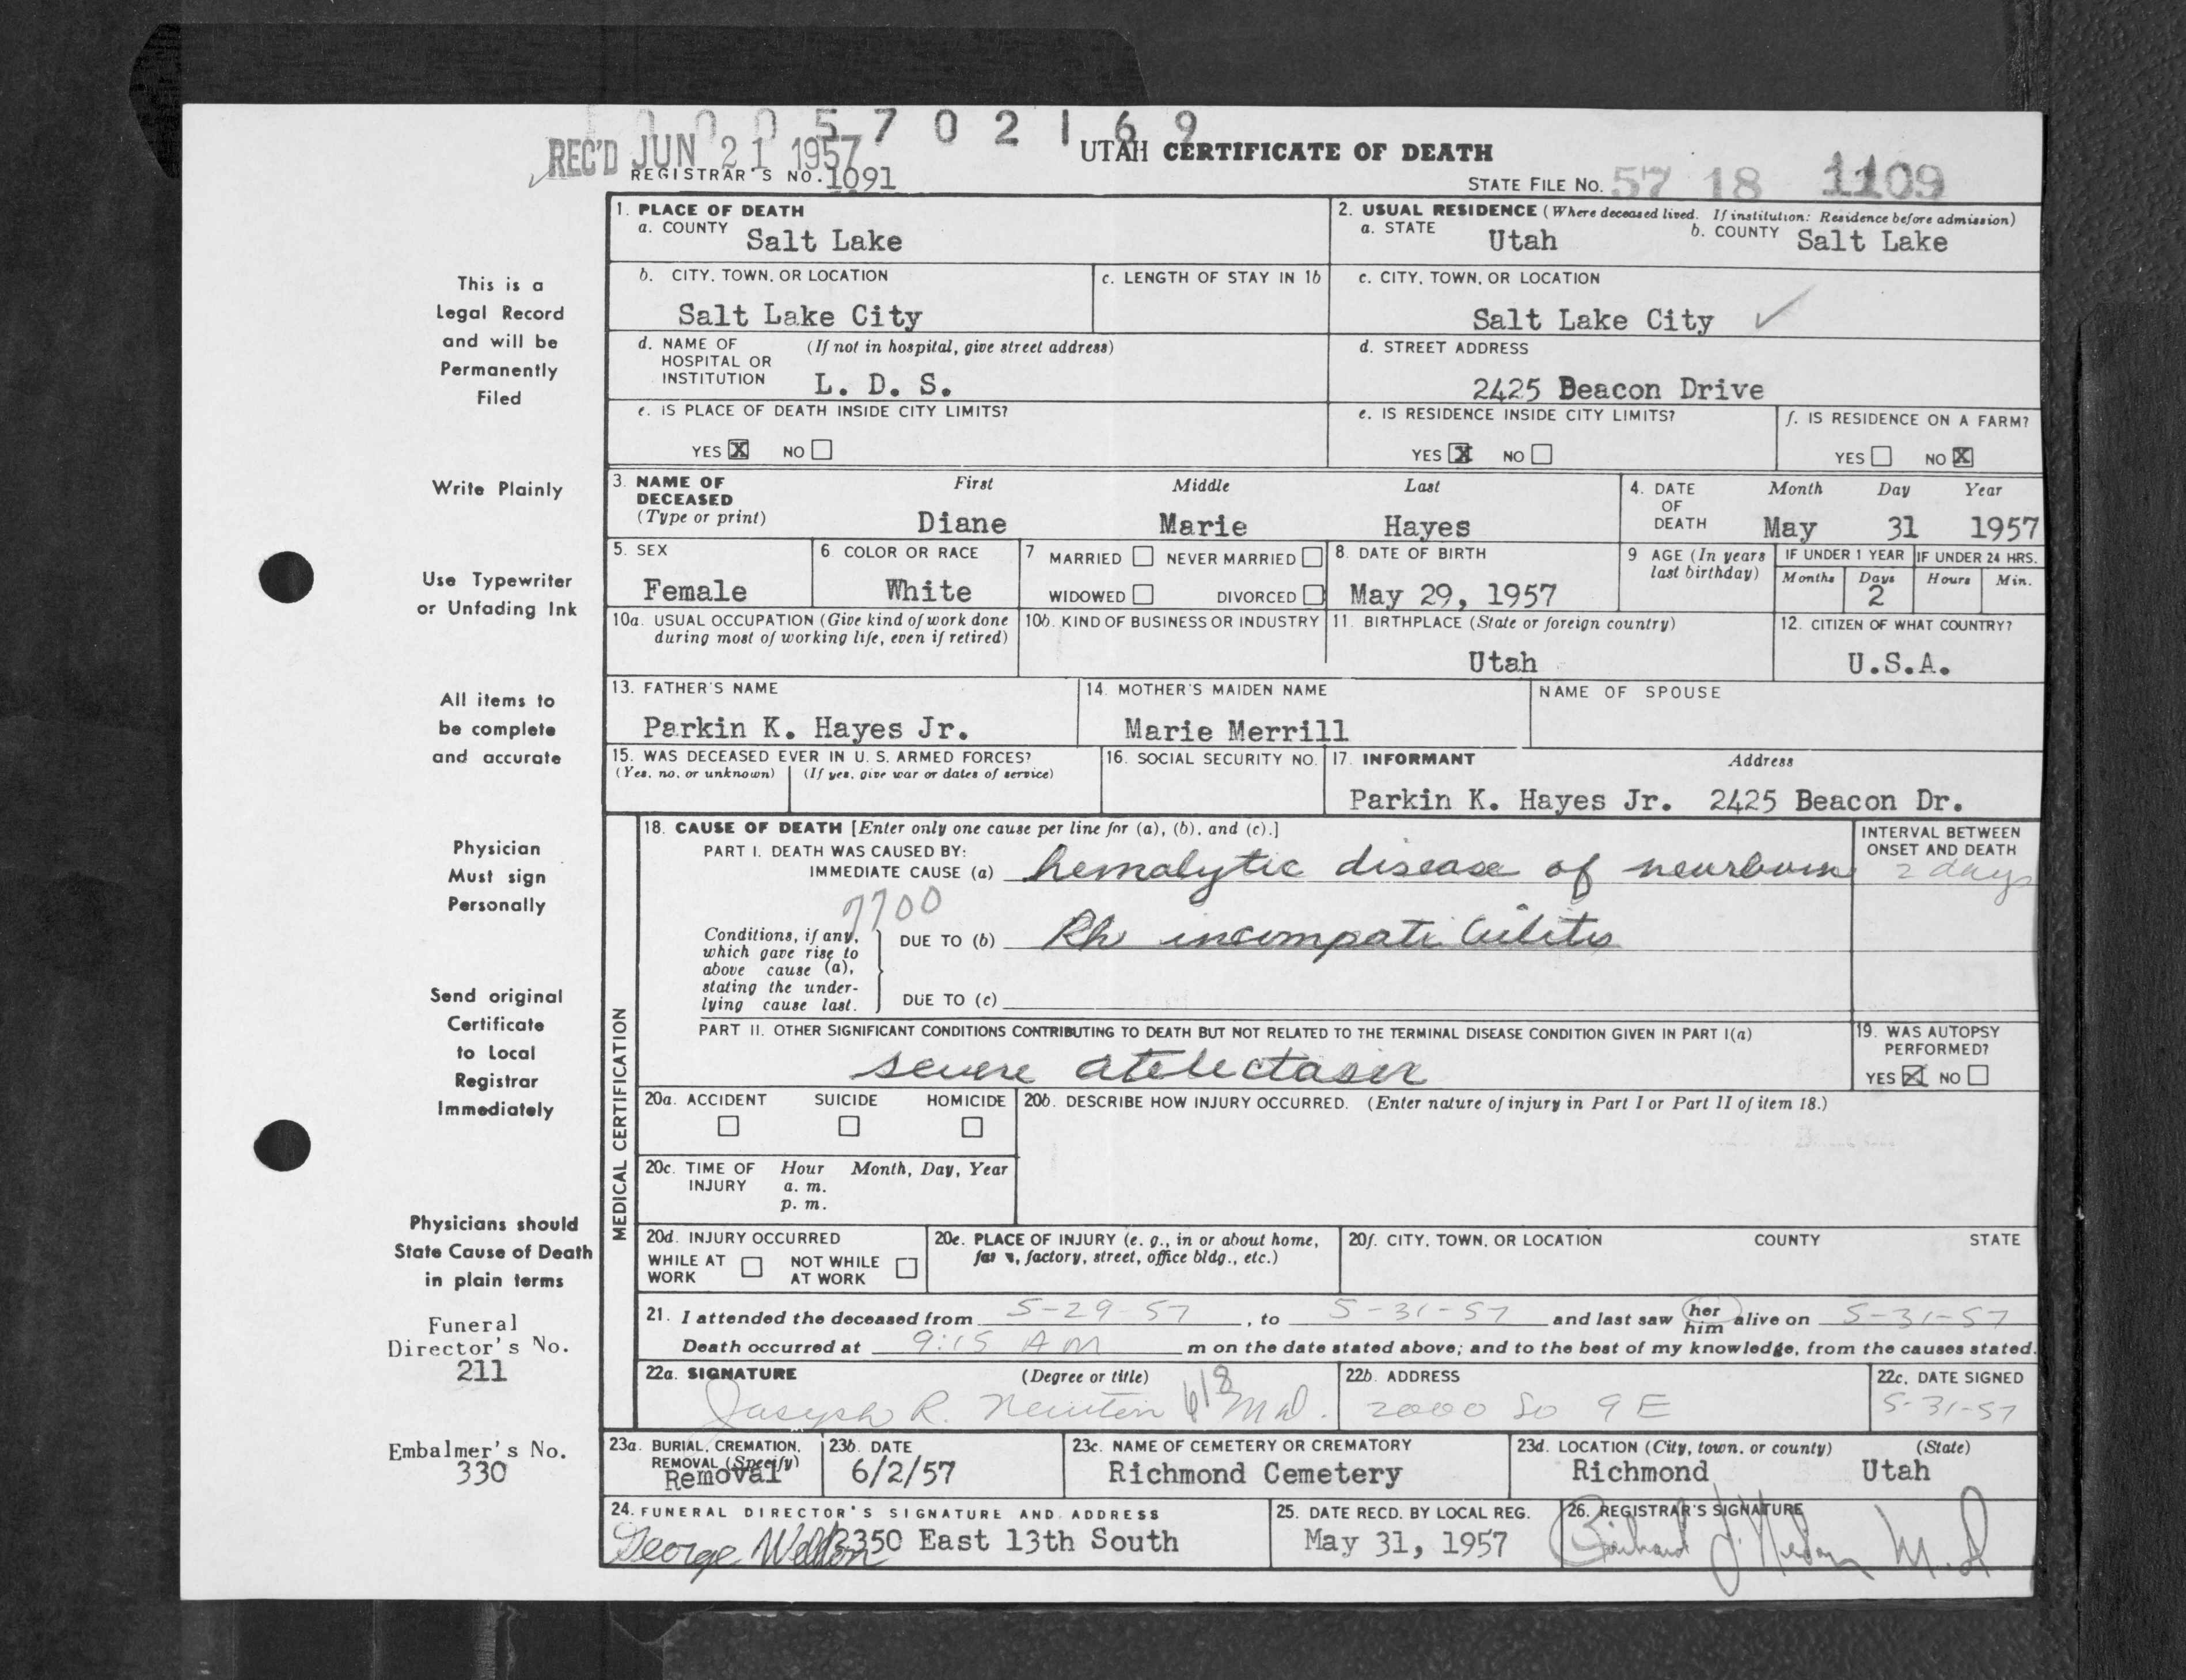 1 0 0 0 5 7 0 2 1 6 9
REC'D JUN 21 1957
UTAH CERTIFICATE OF DEATH
REGISTRAR'S NO. 1091
STATE FILE NO. 57 18 1109
This is a
Legal Record
and will be
Permanently
Filed
Write Plainly
Use Typewriter
or Unfading Ink
All items to
be complete
and accurate
Physician
Must sign
Personally
Send original
Certificate
to Local
Registrar
Immediately
Physicians should
State Cause of Death
in plain terms
Funeral
Director's No.
211
Embalmer's No.
330
1. PLACE OF DEATH
a. COUNTY Salt Lake
2. USUAL RESIDENCE (Where deceased lived. If institution: Residence before admission)
a. STATE Utah b. COUNTY Salt Lake
b. CITY, TOWN, OR LOCATION
Salt Lake City
c. LENGTH OF STAY IN 1b
c. CITY, TOWN, OR LOCATION
Salt Lake City ✓
d. NAME OF (If not in hospital, give street address)
HOSPITAL OR
INSTITUTION L. D. S.
d. STREET ADDRESS
2425 Beacon Drive
e. IS PLACE OF DEATH INSIDE CITY LIMITS?
YES X NO
e. IS RESIDENCE INSIDE CITY LIMITS?
YES X NO
f. IS RESIDENCE ON A FARM?
YES NO X
3. NAME OF DECEASED (Type or print)
First Middle Last
Diane Marie Hayes
4. DATE OF DEATH
Month Day Year
May 31 1957
5. SEX
Female
6. COLOR OR RACE
White
7 MARRIED NEVER MARRIED
WIDOWED DIVORCED
8. DATE OF BIRTH
May 29, 1957
9 AGE (In years last birthday)
IF UNDER 1 YEAR IF UNDER 24 HRS.
Months Days Hours Min.
2
10a. USUAL OCCUPATION (Give kind of work done
during most of working life, even if retired)
10b. KIND OF BUSINESS OR INDUSTRY
11. BIRTHPLACE (State or foreign country)
Utah
12. CITIZEN OF WHAT COUNTRY?
U.S.A.
13. FATHER'S NAME
Parkin K. Hayes Jr.
14. MOTHER'S MAIDEN NAME
Marie Merrill
NAME OF SPOUSE
15. WAS DECEASED EVER IN U. S. ARMED FORCES?
(Yes, no, or unknown) (If yes, give war or dates of service)
16. SOCIAL SECURITY NO.
17. INFORMANT Address
Parkin K. Hayes Jr. 2425 Beacon Dr.
MEDICAL CERTIFICATION
18. CAUSE OF DEATH [Enter only one cause per line for (a), (b), and (c).]
PART I. DEATH WAS CAUSED BY:
IMMEDIATE CAUSE (a) hemalytic disease of newborn
INTERVAL BETWEEN
ONSET AND DEATH
2 days
7700
Conditions, if any,
which gave rise to
above cause (a),
stating the under-
lying cause last.
DUE TO (b) Rh incompatibility
DUE TO (c)
PART II. OTHER SIGNIFICANT CONDITIONS CONTRIBUTING TO DEATH BUT NOT RELATED TO THE TERMINAL DISEASE CONDITION GIVEN IN PART I(a)
severe atelectasis
19. WAS AUTOPSY
PERFORMED?
YES X NO
20a. ACCIDENT SUICIDE HOMICIDE
20b. DESCRIBE HOW INJURY OCCURRED. (Enter nature of injury in Part I or Part II of item 18.)
20c. TIME OF INJURY Hour Month, Day, Year
a. m.
p. m.
20d. INJURY OCCURRED
WHILE AT WORK NOT WHILE AT WORK
20e. PLACE OF INJURY (e. g., in or about home,
farm, factory, street, office bldg., etc.)
20f. CITY, TOWN, OR LOCATION COUNTY STATE
21. I attended the deceased from 5-29-57, to 5-31-57 and last saw her him alive on 5-31-57
Death occurred at 9:15 AM m on the date stated above; and to the best of my knowledge, from the causes stated.
22a. SIGNATURE (Degree or title)
Joseph R. Newton 618 M.D.
22b. ADDRESS
2000 So 9 E
22c. DATE SIGNED
5-31-57
23a. BURIAL, CREMATION,
REMOVAL (Specify)
Removal
23b. DATE
6/2/57
23c. NAME OF CEMETERY OR CREMATORY
Richmond Cemetery
23d. LOCATION (City, town, or county) (State)
Richmond Utah
24. FUNERAL DIRECTOR'S SIGNATURE AND ADDRESS
George 2350 East 13th South
25. DATE RECD. BY LOCAL REG.
May 31, 1957
26. REGISTRAR'S SIGNATURE
M.D